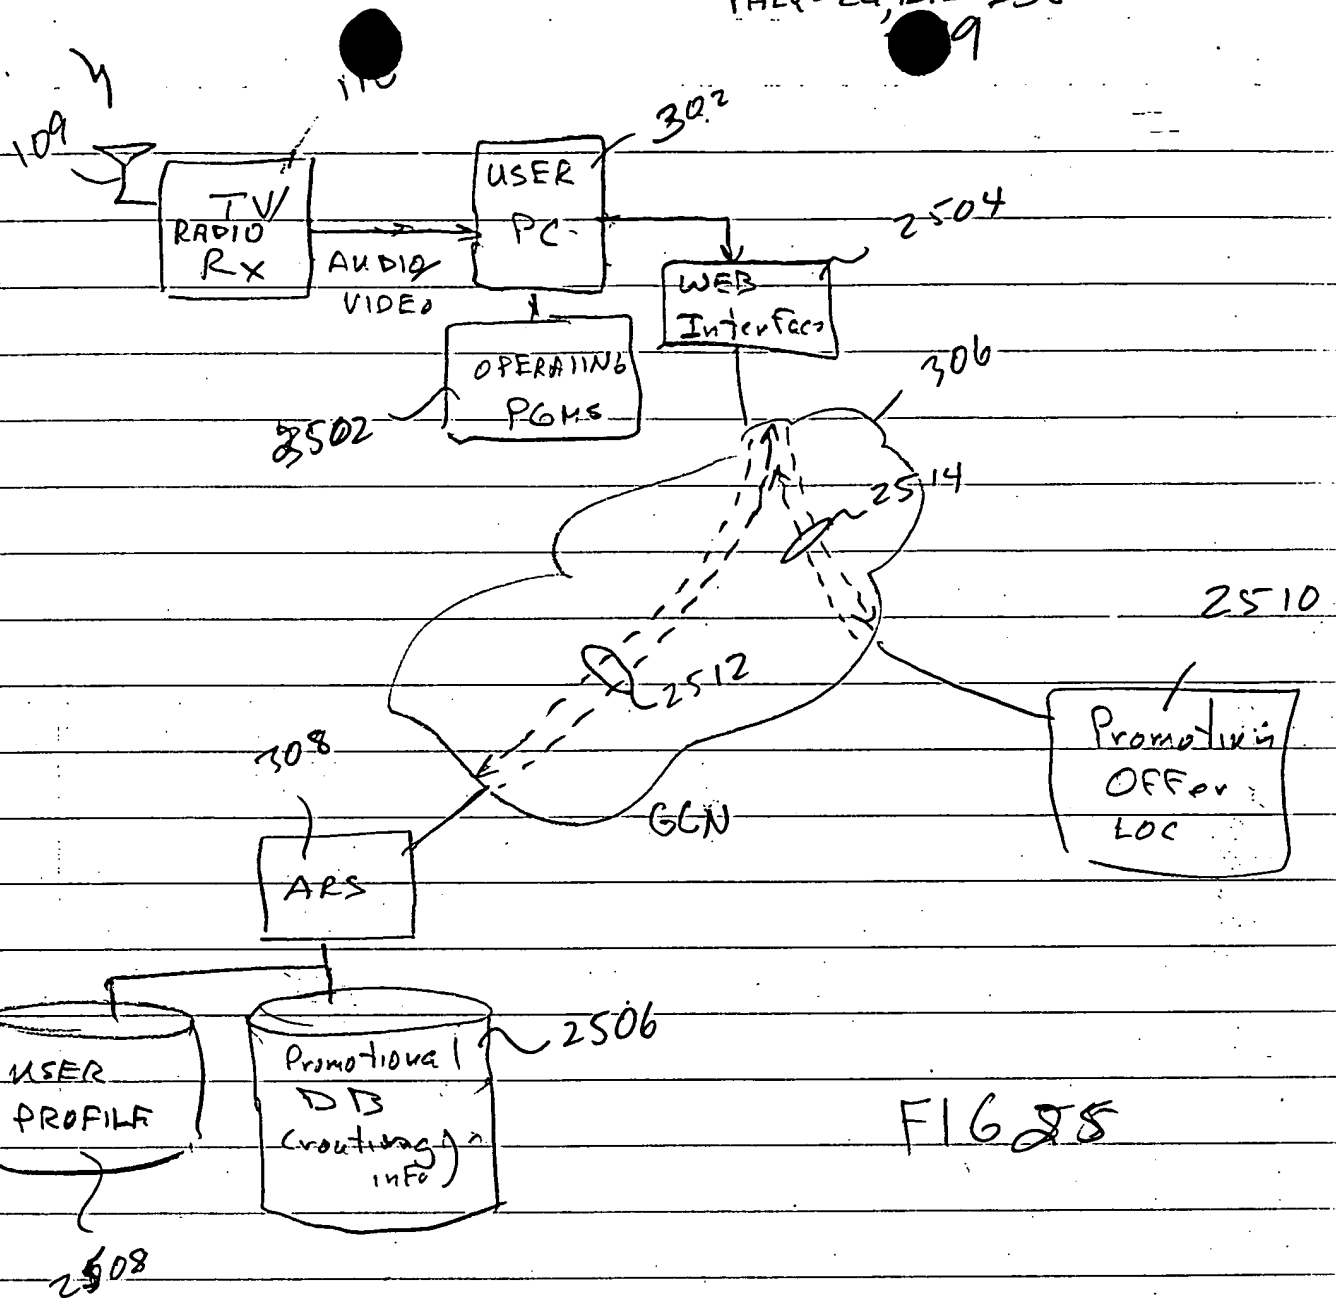 9
109
110
TV/
RADIO
Rx
AUDIO/
VIDEO
USER
PC
302
2504
WEB
Interface
OPERATING
PGMS
2502
306
2514
2512
2510
Promotion
OFFer
LOC
GCN
308
ARS
USER
PROFILE
2508
Promotional
DB
(routing
info)
2506
FIG 25